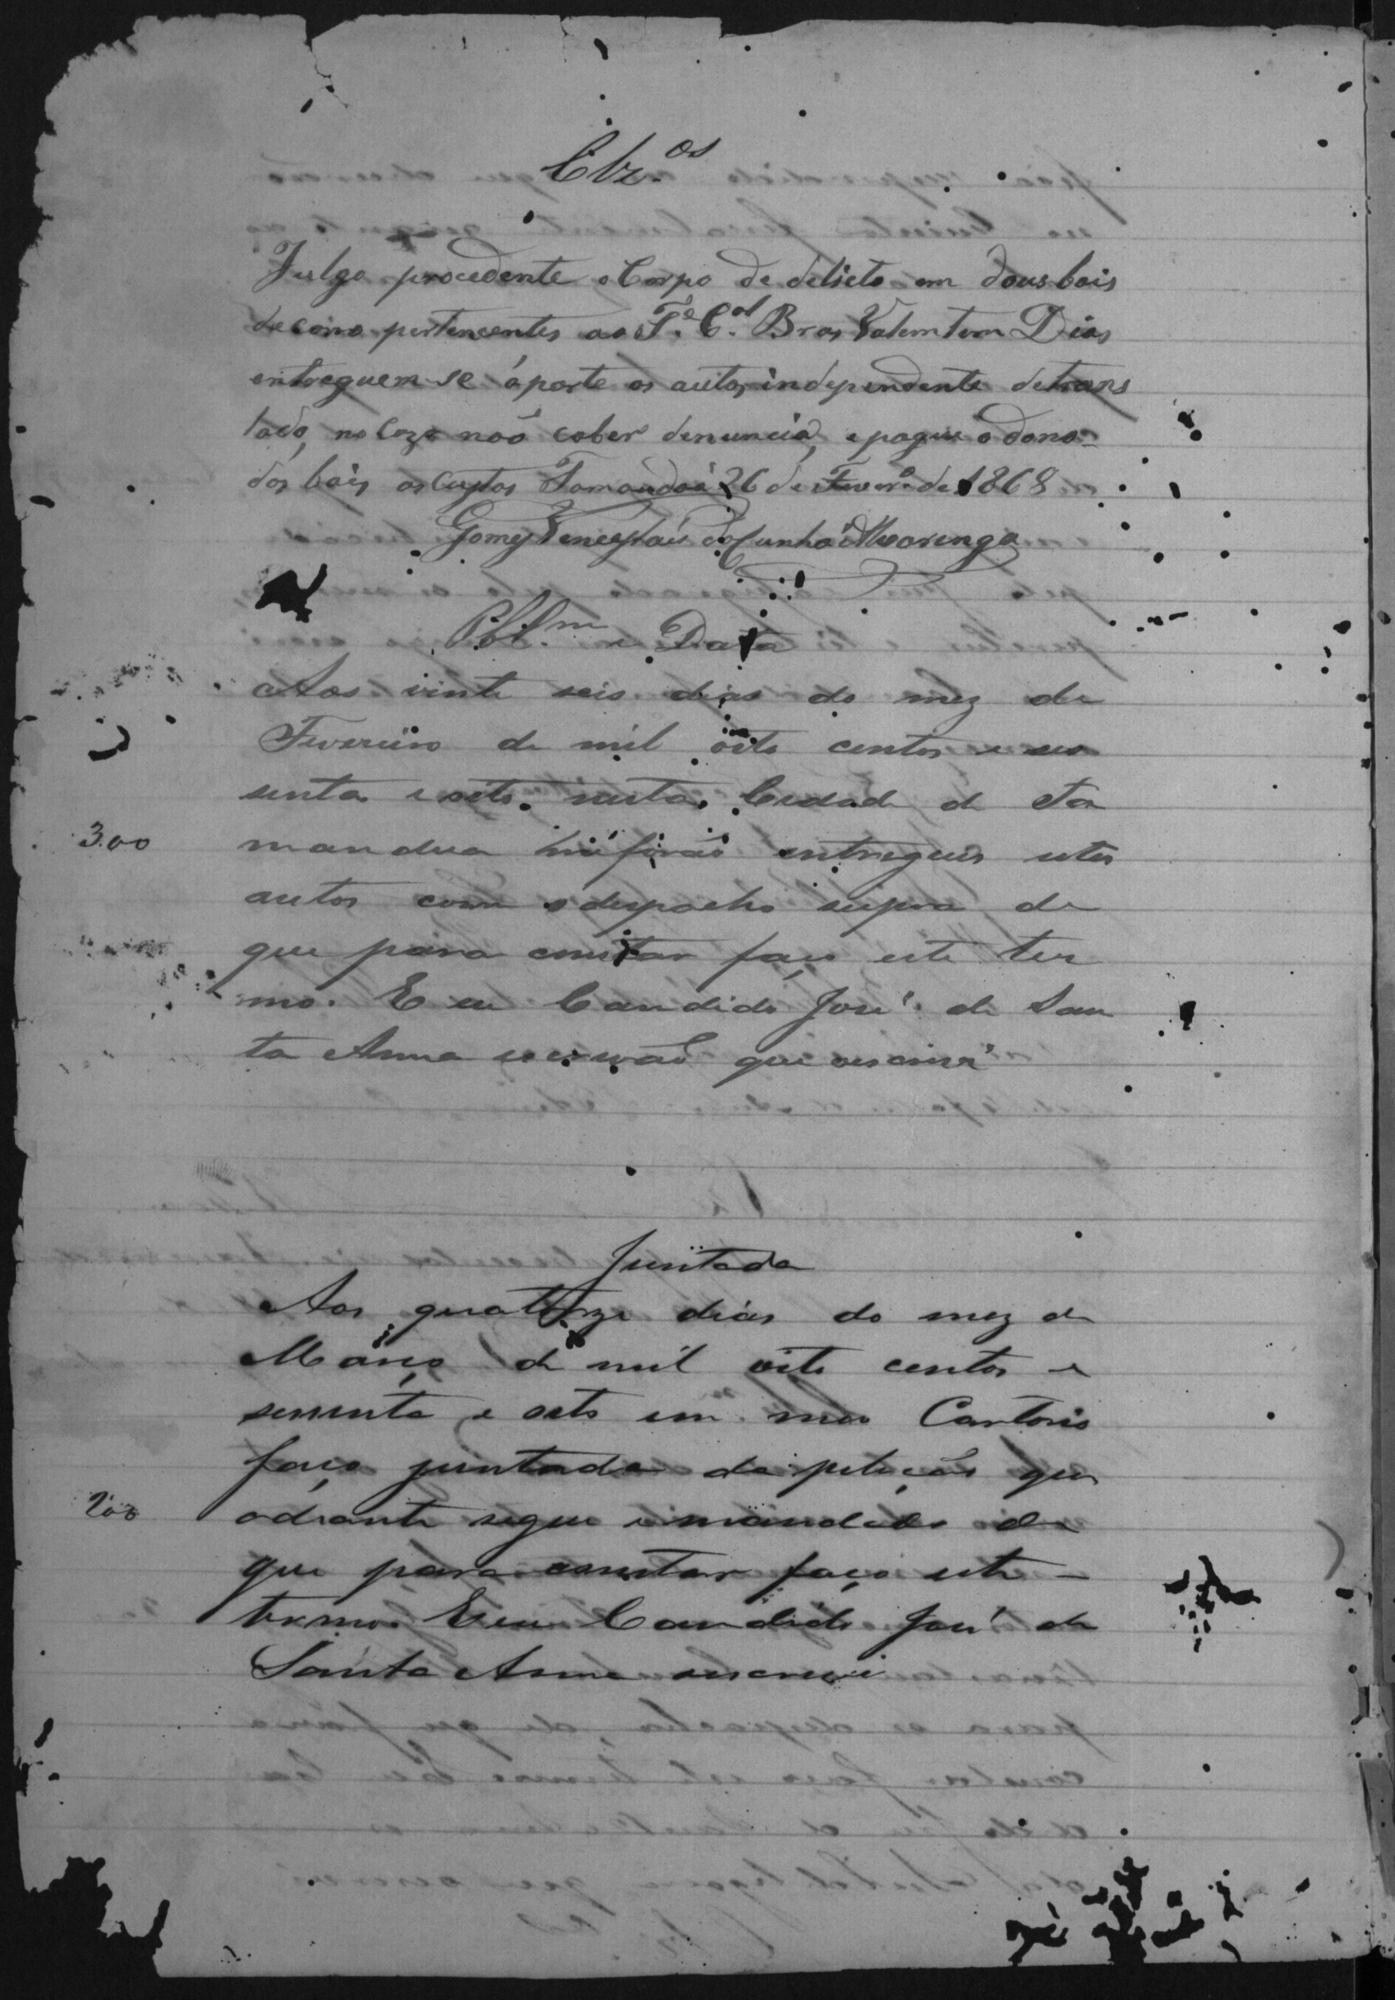 Clz.os
Julgo procedente o Corpo de delicto em dous bois
de carro pertencentes ao T.e C.el Bras Valentim Dias
entreguem se á parte os autos independente de trans
lado, no cazo naõ caber denuncia, e pague o dono
dos bois as custas Tamanduá 26 de Fever.o de 1868
Gomes Venceslau da Cunha
Pbl.m e Data
Aos vinte seis dias do mez de
Fevereiro de mil oito centos e ses
senta e oito nesta Cidade de Ta
mandua me foraõ entregues estes
300
autos com o despacho supra de
que para constar faço este ter
mo. E eu Candido José de San
ta Anna escrivaõ que escrevi
Juntada
Aos quatorze dias do mez de
Março de mil oito centos e
sessenta e oito em meu Cartorio
faço juntada da petiçaõ que
200
adiante segue e mandado de
que para constar faço este
termo. E eu Candido José de
Santa Anna escrevi